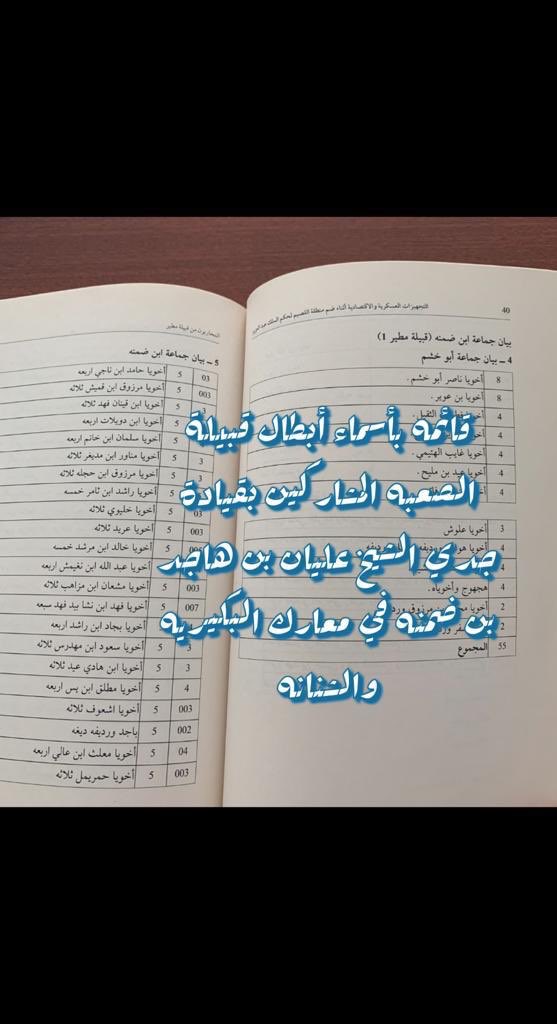 40
التجهيزات العسكرية والاقتصادية أثناء ضم منطقة القصيم لحكم الملك عبد العزيز
بيان جماعة ابن ضمنه (قبيلة مطير 1)
4 ـ بيان جماعة أبو خشم
أخويا ناصر أبو خشم. 8
أخويا بن عوير. 8
4
4
أخويا غايب الهتيمي. 4
بن مليح. 4
4
أخويا علوش 3
4
4
هجهوج وأخوياه. 4
2
2
المجموع 55
المحاربون من قبيلة مطير
5 ـ بيان جماعة ابن ضمنه
أخويا حامد ابن ناجي اربعه 5 03
أخويا مرزوق ابن قميش ثلاثه 5 003
أخويا ابن قينان فهد ثلاثه 5
أخويا ابن دويلات اربعه 5
أخويا سلمان ابن خاتم اربعه 5
أخويا مناور ابن مديغر ثلاثه 5 3
أخويا مرزوق ابن حجله ثلاثه 5 3
أخويا راشد ابن ثامر خمسه 5
أخويا خليوي ثلاثه 5 03
أخويا عريد ثلاثه 5 003
أخويا خالد ابن مرشد خمسه 5
أخويا عبد الله ابن نغيمش اربعه 5
أخويا مشعان ابن مزاهب ثلاثه 5 003
أخويا فهد ابن نشا بيد فهد سبعه 5 007
أخويا بجاد ابن راشد اربعه
أخويا سعود ابن مهدرس ثلاثه 5 3
أخويا ابن هادي عيد ثلاثه 5 3
أخويا مطلق ابن يس اربعه 5 4
أخويا اشعوف ثلاثه 5 003
باجد ورديفه ديغه 5 002
أخويا معلث ابن عالي اربعه 5 04
أخويا حمريمل ثلاثه 5 003
قائمة بأسماء أبطال قبيلة
الصعبه المشاركين بقيادة
جدي الشيخ عليان بن هاجد
بن ضمنه في معارك البكيريه
والشنانه